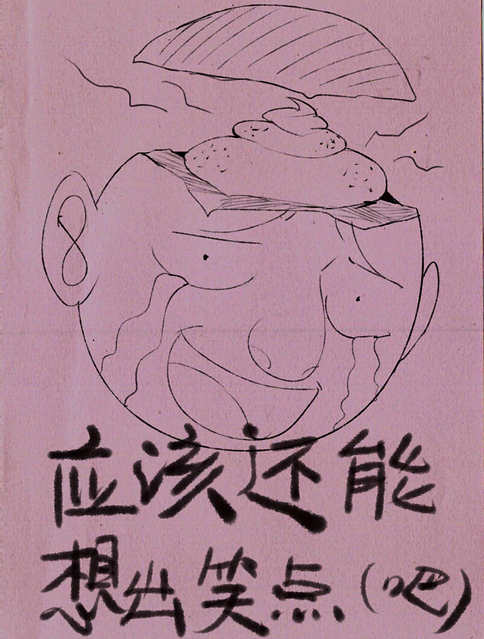 应该还能
想出笑点(吧)